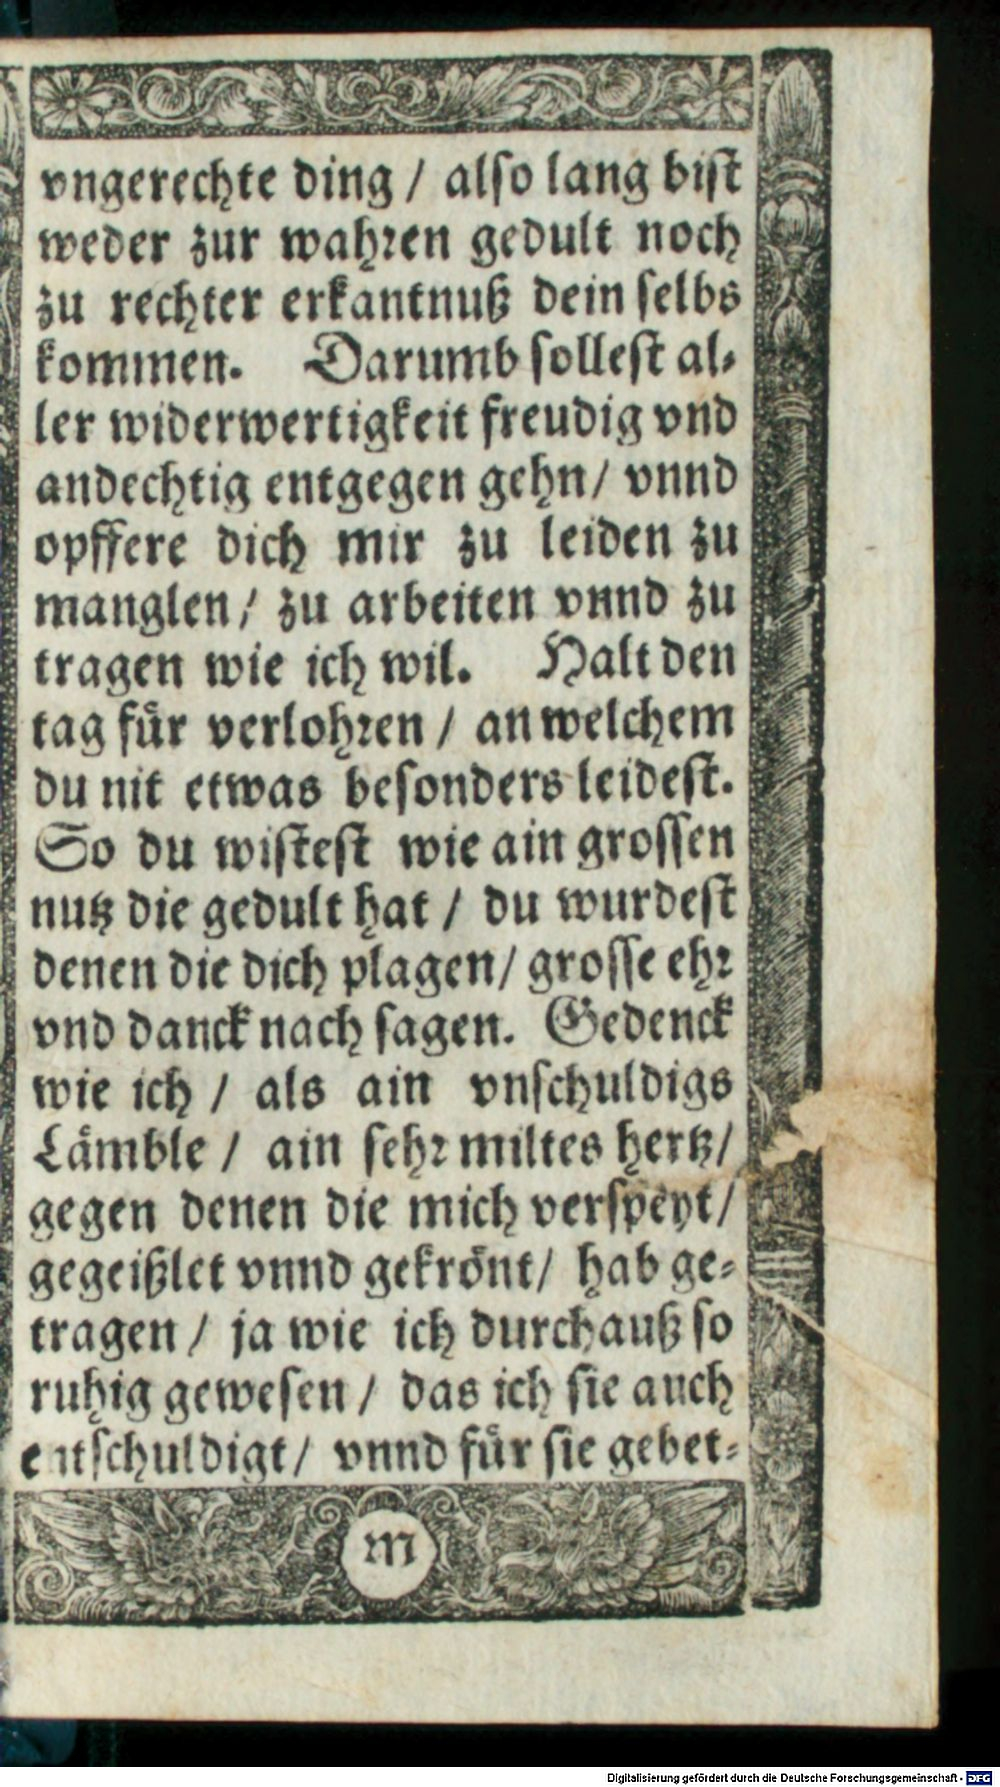 vngerechte ding / also lang bist
weder zur wahren gedult noch
zu rechter erkantnuß dein selbs
kommen. Darumb sollest al-
ler widerwertigkeit freudig vnd
andechtig entgegen gehn / vnnd
opffere dich mir zu leiden zu
manglen / zu arbeiten vnnd zu
tragen wie ich wil. Halt den
tag für verlohren / an welchem
du nit etwas besonders leidest.
So du wistest wie ain grossen
nutz die gedult hat / du wurdest
denen die dich plagen / grosse ehr
vnd danck nach sagen. Gedenck
wie ich / als ain vnschuldigs
Lämble / ain sehr miltes hertz /
gegen denen die mich verspeyt /
gegeißlet vnnd gekrönt / hab ge-
tragen / ja wie ich durchauß so
ruhig gewesen / das ich sie auch
entschuldigt / vnnd für sie gebet-
m
Digitalisierung gefördert durch die Deutsche Forschungsgemeinschaft - DFG